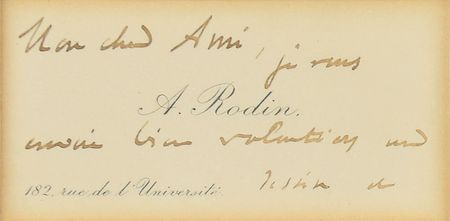 Mon cher Ami,
je vous
A. Rodin.
envoie bien volontiers un
182, rue de l'Université
dessin et